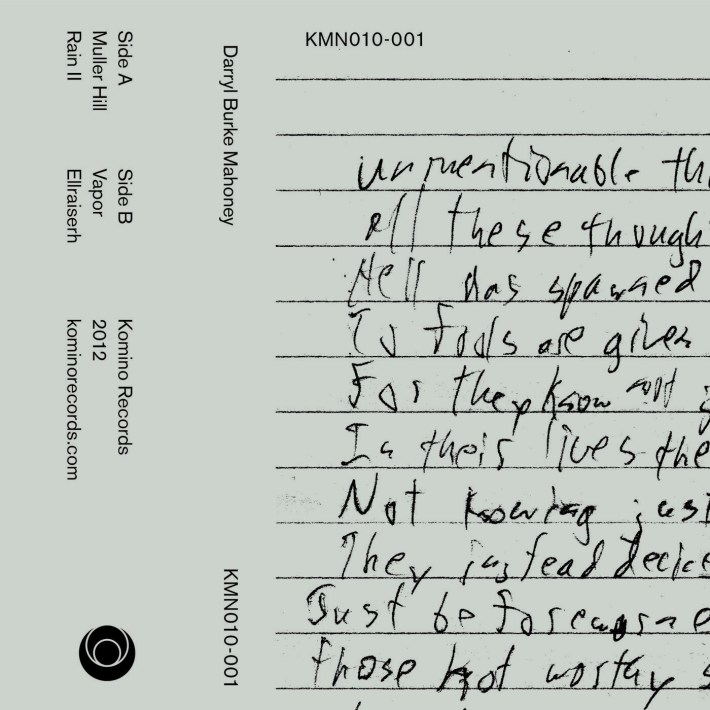 Side A
Muller Hill
Rain II
Side B
Vapor
Ellraiserh
Komino Records
2012
kominorecords.com
Darryl Burke Mahoney
KMN010-001
KMN010-001
unmentionable th
All these though
Hell has spawned
To fools are given
For they know not
In their lives the
Not knowing jus
They instead decide
Just be forewarne
those not worthy s